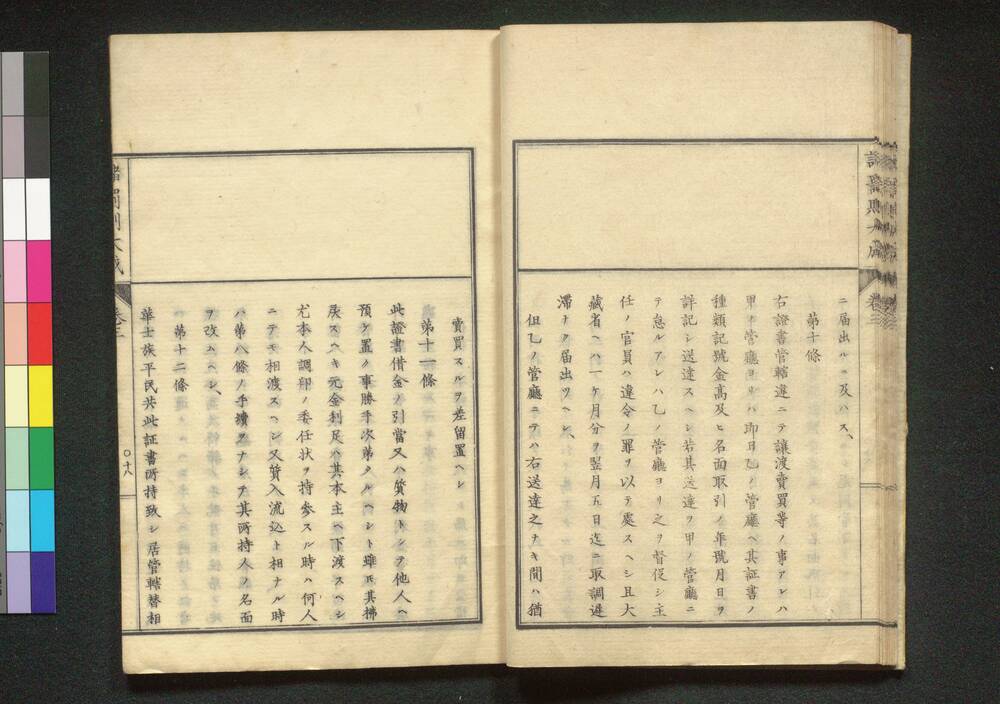 ニ届出ルニ及ハス、
第十條
右證書管轄違ニテ讓渡賣買等ノ事アレハ
甲ノ管廳ヨリハ即日乙ノ管廳ヘ其証書ノ
種類記號金高及ヒ名面取引ノ年號月日ヲ
詳記シ送達スヘシ若其送達ヲ甲ノ管廳ニ
テ怠ルアレハ乙ノ管廳ヨリ之ヲ督促シ主
任ノ官員ハ違令ノ罪ヲ以テ處スヘシ且大
藏省ヘハ一ケ月分ヲ翌月五日迄ニ取調遲
滯ナク届出ツヘシ、
但乙ノ管廳ニテハ右送達之ナキ間ハ猶
賣買スルヲ差留置ヘシ
第十一條
此證書借金ノ引當又ハ質物トシテ他人ヘ
預ケ置ノ事勝手次第タルヘシト雖モ其拂
戻スヘキ元金利足ハ其本主ヘ下渡スヘシ
尤本人調印ノ委任状ヲ持参スル時ハ何人
ニテモ相渡スヘシ又質入流込ト相ナル時
ハ第八條ノ手續ヲナシテ其所持人ノ名面
ヲ改ムヘシ、
第十二條
華士族平民共此証書所持致シ居管轄替相
卷三
○十八